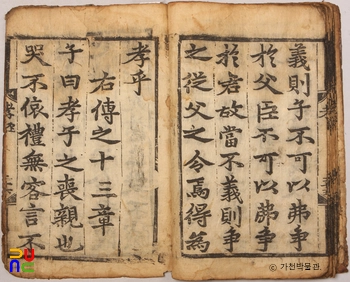 義則子不可以弗爭
於父臣不可以弗爭
於君故當不義則爭
之從父之令焉得爲
孝乎
右傳之十三章
子曰孝子之喪親也
哭不偯禮無容言不
ⓒ 가천박물관